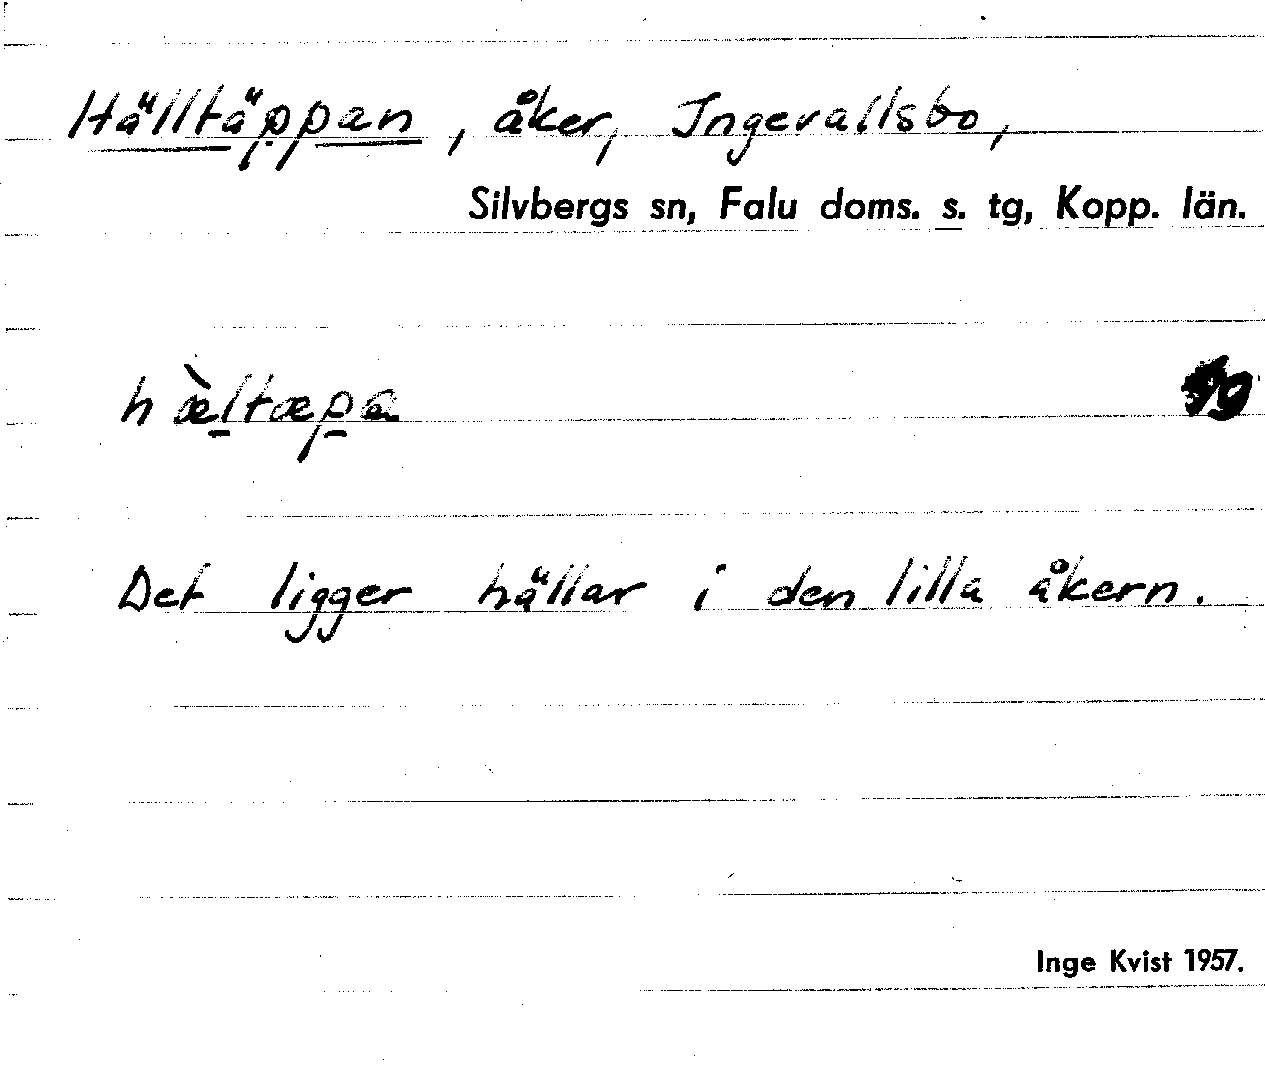 Hälltäppan, åker, Ingevallsbo,
Silvbergs sn, Falu doms. s. tg, Kopp. län.
hæ̀l̠tæp̠a
Det ligger hällar i den lilla åkern.
Inge Kvist 1957.